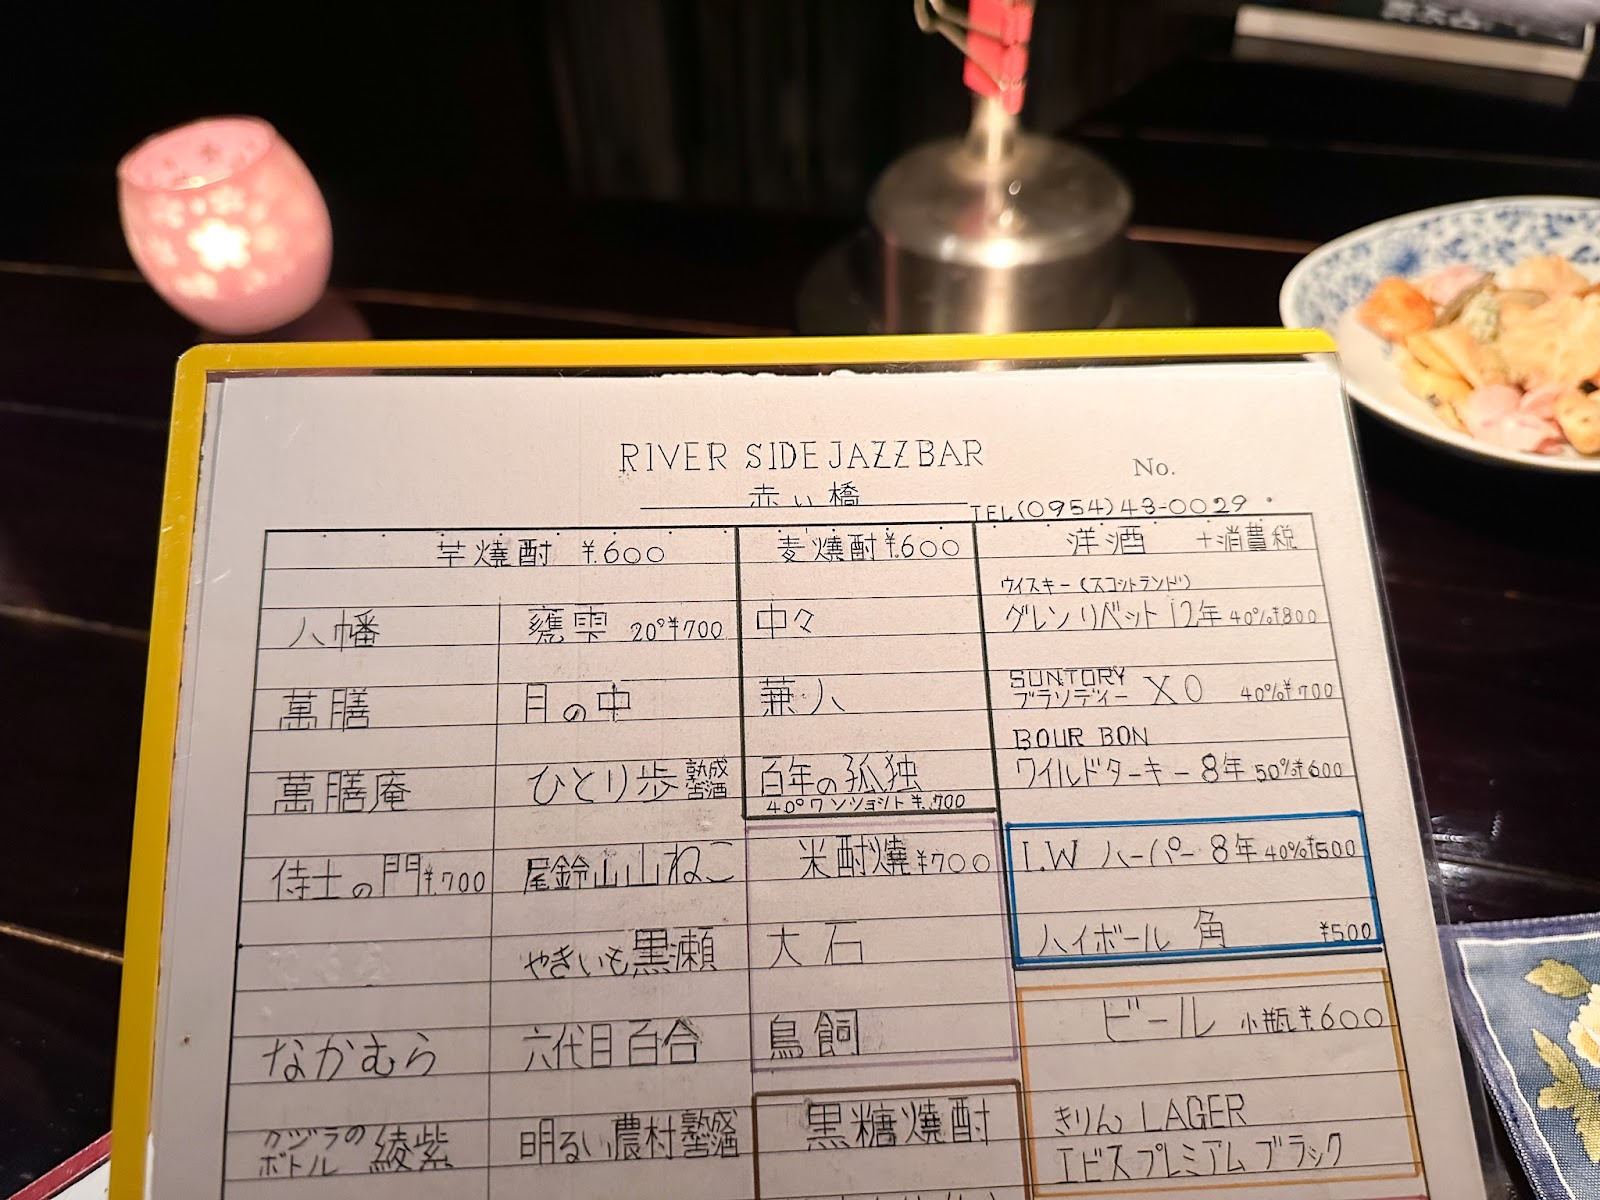 RIVER SIDE JAZZ BAR
No.
赤い橋
TEL(0954)43-0029
芋焼酎 ¥.600
八幡
甕雫 20°¥700
萬膳
月の中
萬膳庵
ひとり歩 熟成
侍士の門¥.700
尾鈴山山ねこ
やきいも黒瀬
なかむら
六代目百合
クジラの
ボトル 綾紫
明るい農村熟成
麦焼酎¥.600
中々
兼八
百年の孤独
40°ワンショット¥.700
米酎焼¥700
大石
鳥飼
黒糖焼酎
洋酒 +消費税
ウイスキー(スコットランド)
グレンリベット12年 40%¥800
SUNTORY
ブランディー XO 40%¥700
BOUR BON
ワイルドターキー8年 50%¥600
I.W ハーパー8年 40%¥500
ハイボール 角 ¥500
ビール 小瓶¥.600
きりん LAGER
エビスプレミアムブラック